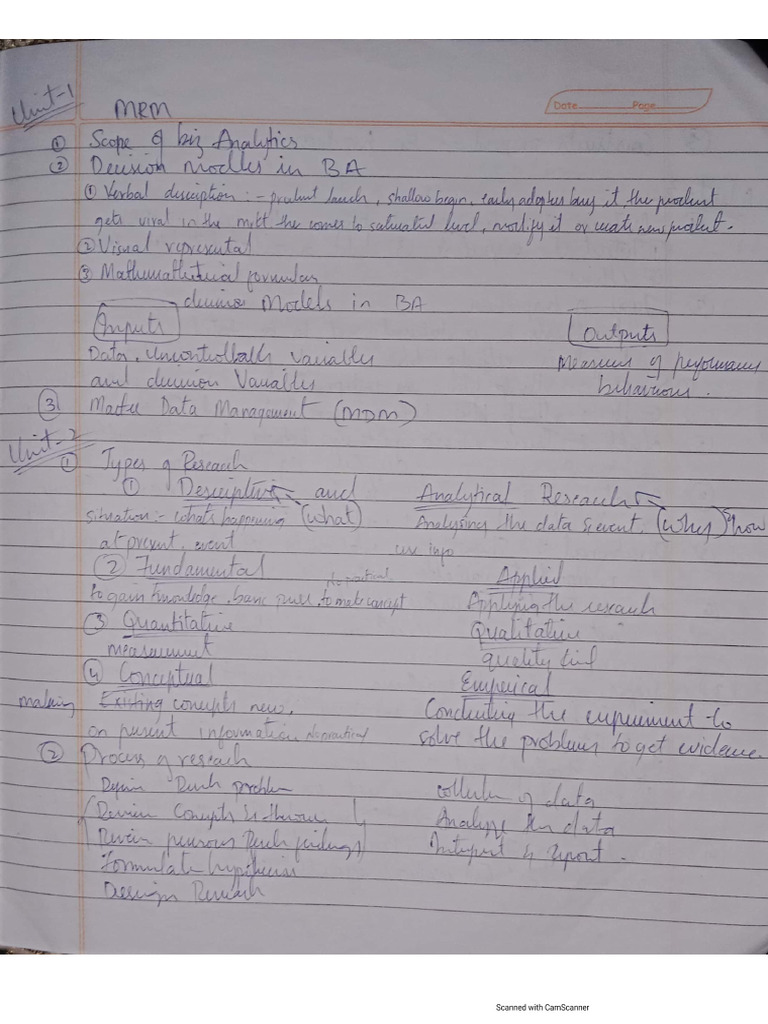 Unit-1
Date Page
MRM
① Scope of biz Analytics
② Decision modles in BA
① Verbal desciption :- product launch, shallow begin, early adopters buy it the product
gets viral in the mrkt the comes to saturated level, modify it or create new product.
② Visual represental
③ Mathamathetical formulas
decision Models in BA
Inputs Outputs
Data, Uncontrollable Variables Measures of performances
and decision Variables behaviours.
③ Master Data Management (MDM)
Unit-2
① Types of Research
① Desciptive and Analytical Research
situation:- whats happening (what) Analysing the data & event (why) & how
at present, event use info
② Fundamental no practical Applied
to gain knowledge, basic , to make concept Applying the research
③ Quantitative Qualitative
measurement quality
④ Conceptual Emperical
making Existing concepts new, Conducting the expeniment to
on present information no practical solve the problems to get evidence.
② Process of reseach
Define problem collection of data
Review Concepts & theories Analyze the data
Review previous findings Interpret & report.
Formulate hypothesis
Design Reseach
Scanned with CamScanner